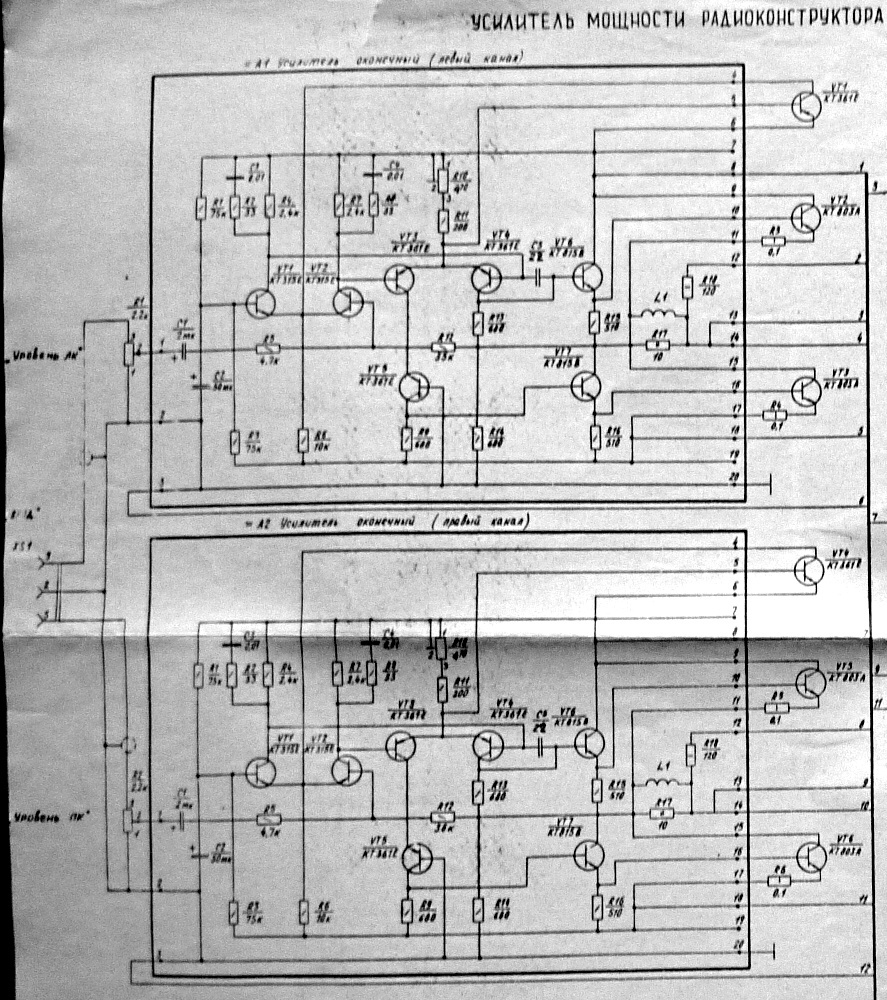 УСИЛИТЕЛЬ МОЩНОСТИ РАДИОКОНСТРУКТОРА
А1 Усилитель оконечный (левый канал)
4
VT1
КТ361Е
5
6
7
C3
0,01
C4
0,01
R10
470
8
1
3
9
R1
75к
R2
33
R4
2,4к
R7
2,4к
R8
33
R11
200
10
VT2
КТ803А
11
R3
0,1
12
2
VT3
КТ361Е
VT4
КТ361Е
C5
22
VT6
КТ815В
VT1
КТ315Е
VT2
КТ315Е
R18
120
L1
R1
2,2к
C1
2мк
R13
680
R15
510
13
3
R5
4,7к
R12
33к
R17
10
14
4
"Уровень ЛК"
C2
50мк
VT5
КТ361Е
VT7
КТ815В
15
16
VT3
КТ803А
17
R4
0,1
R3
75к
R6
10к
R9
680
R14
680
R16
510
18
5
19
20
6
7
А2 Усилитель оконечный (правый канал)
XS1
4
VT4
КТ361Е
5
6
7
C3
0,01
C4
0,01
R10
470
8
9
R1
75к
R2
33
R4
2,4к
R7
2,4к
R8
33
R11
200
10
VT5
КТ803А
11
R5
0,1
11
12
8
VT3
КТ361Е
VT4
КТ361Е
C5
22
VT6
КТ815В
VT1
КТ315Е
VT2
КТ315Е
R18
120
L1
R2
2,2к
C1
2мк
R13
680
R15
510
13
9
R5
4,7к
R12
36к
R17
10
14
10
"Уровень ПК"
C2
50мк
VT5
КТ361Е
VT7
КТ815В
15
16
VT6
КТ803А
17
R6
0,1
R3
75к
R6
10к
R9
680
R14
680
R16
510
18
11
19
20
12